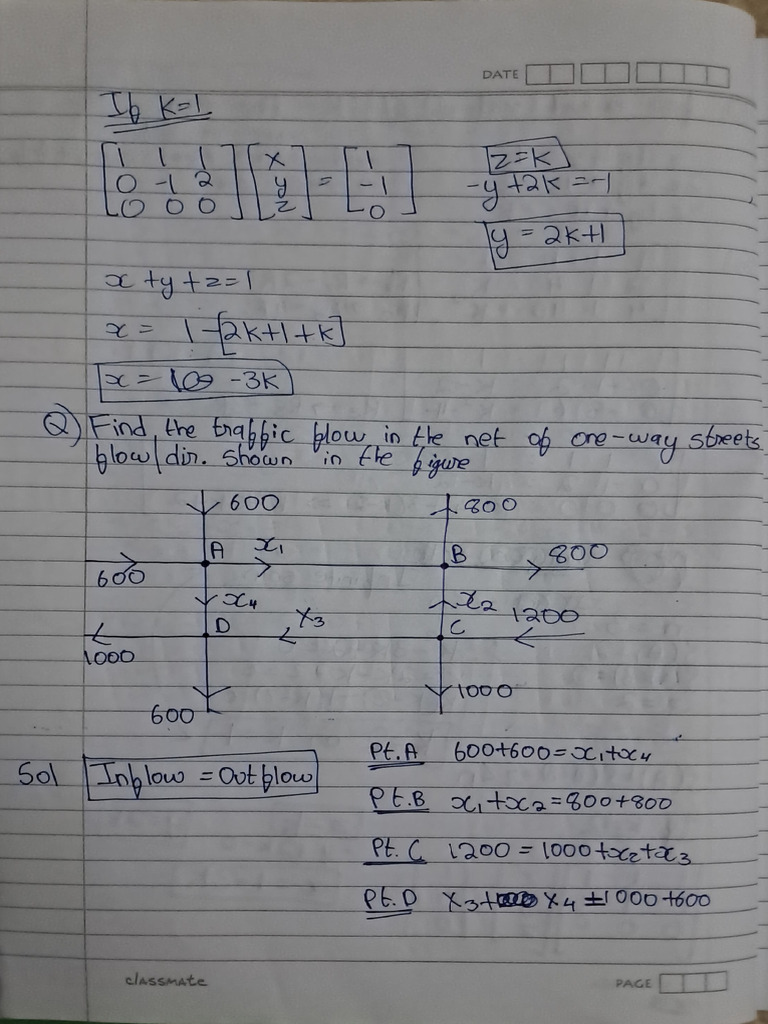 DATE
If K=1
[1 1 1] [x] = [1]
[0 -1 2] [y] [-1]
[0 0 0] [z] [0]
z=k
-y+2k=-1
y = 2k+1
x+y+z=1
x = 1-[2k+1+k]
x = -3k
Q) Find the traffic flow in the net of one-way streets
flow/dir. shown in the figure
600 800
A x₁ B 800
600
x₄ x₂ 1200
D x₃ C
1000
600 1000
Sol Inflow = Outflow
Pt.A 600+600=x₁+x₄
Pt.B x₁+x₂=800+800
Pt.C 1200=1000+x₂+x₃
Pt.D x₃+x₄=1000+600
classmate PAGE